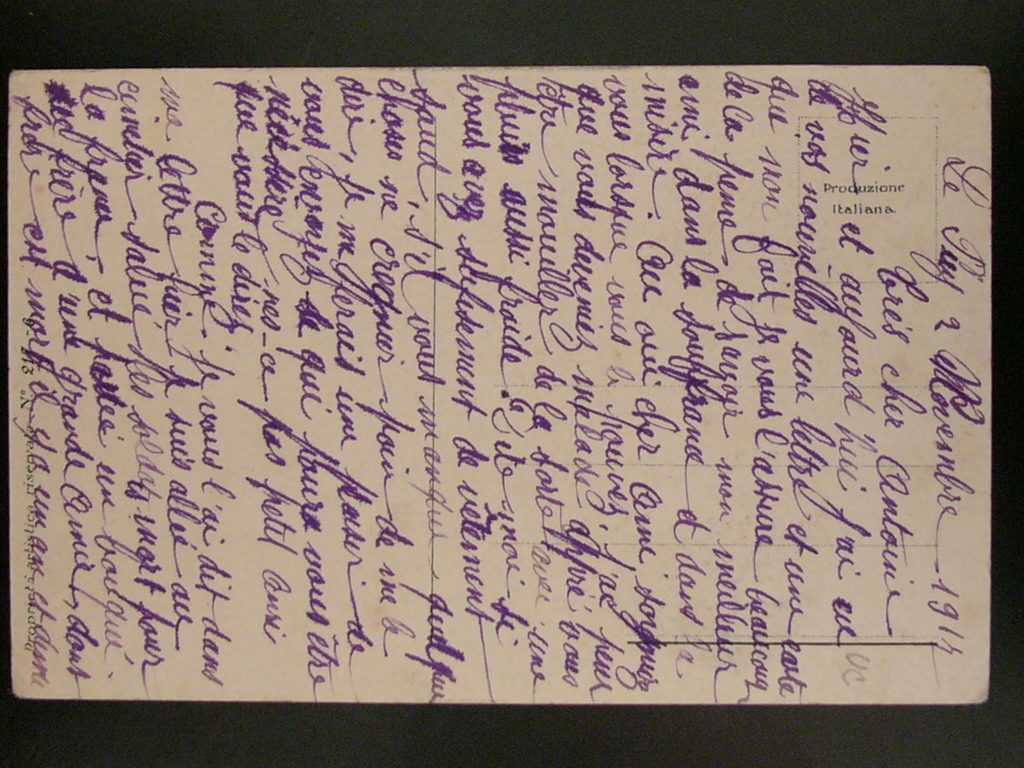 Le Puy 2 Novembre 1914
Très cher Antoine
Hier et aujourd'hui j'ai eu
de vos nouvelles une lettre et une carte
que non fait je vous l'assure beaucoup
de la peine, de savoir mon meilleur
ami dans la souffrance et dans la
misère. Oui cher Amie soignez
vous lorsque vous le pouvez, j'ai peur
que vous deveniez malade, après vous
être mouillez de la sorte avec une
pluie aussi froide. Dite moi si
vous avez suffisament de vètement
chaud, s'il vous manque quelque
choses ne craignier poin de me le
dir, je me ferais un plaisir de
vous l'envoyer ce qui poura vous être
nécessère, nes-ce pas petit Ami
que vous le direz
Comme je vous l'ai dit dans
ma lettre hier, je suis allé au
cimetier salué les soldats mort pour
la france, et portée un bouqué
frère d'une grande Amie, dont
frère est mort il y a un an et demi
Produzione
Italiana